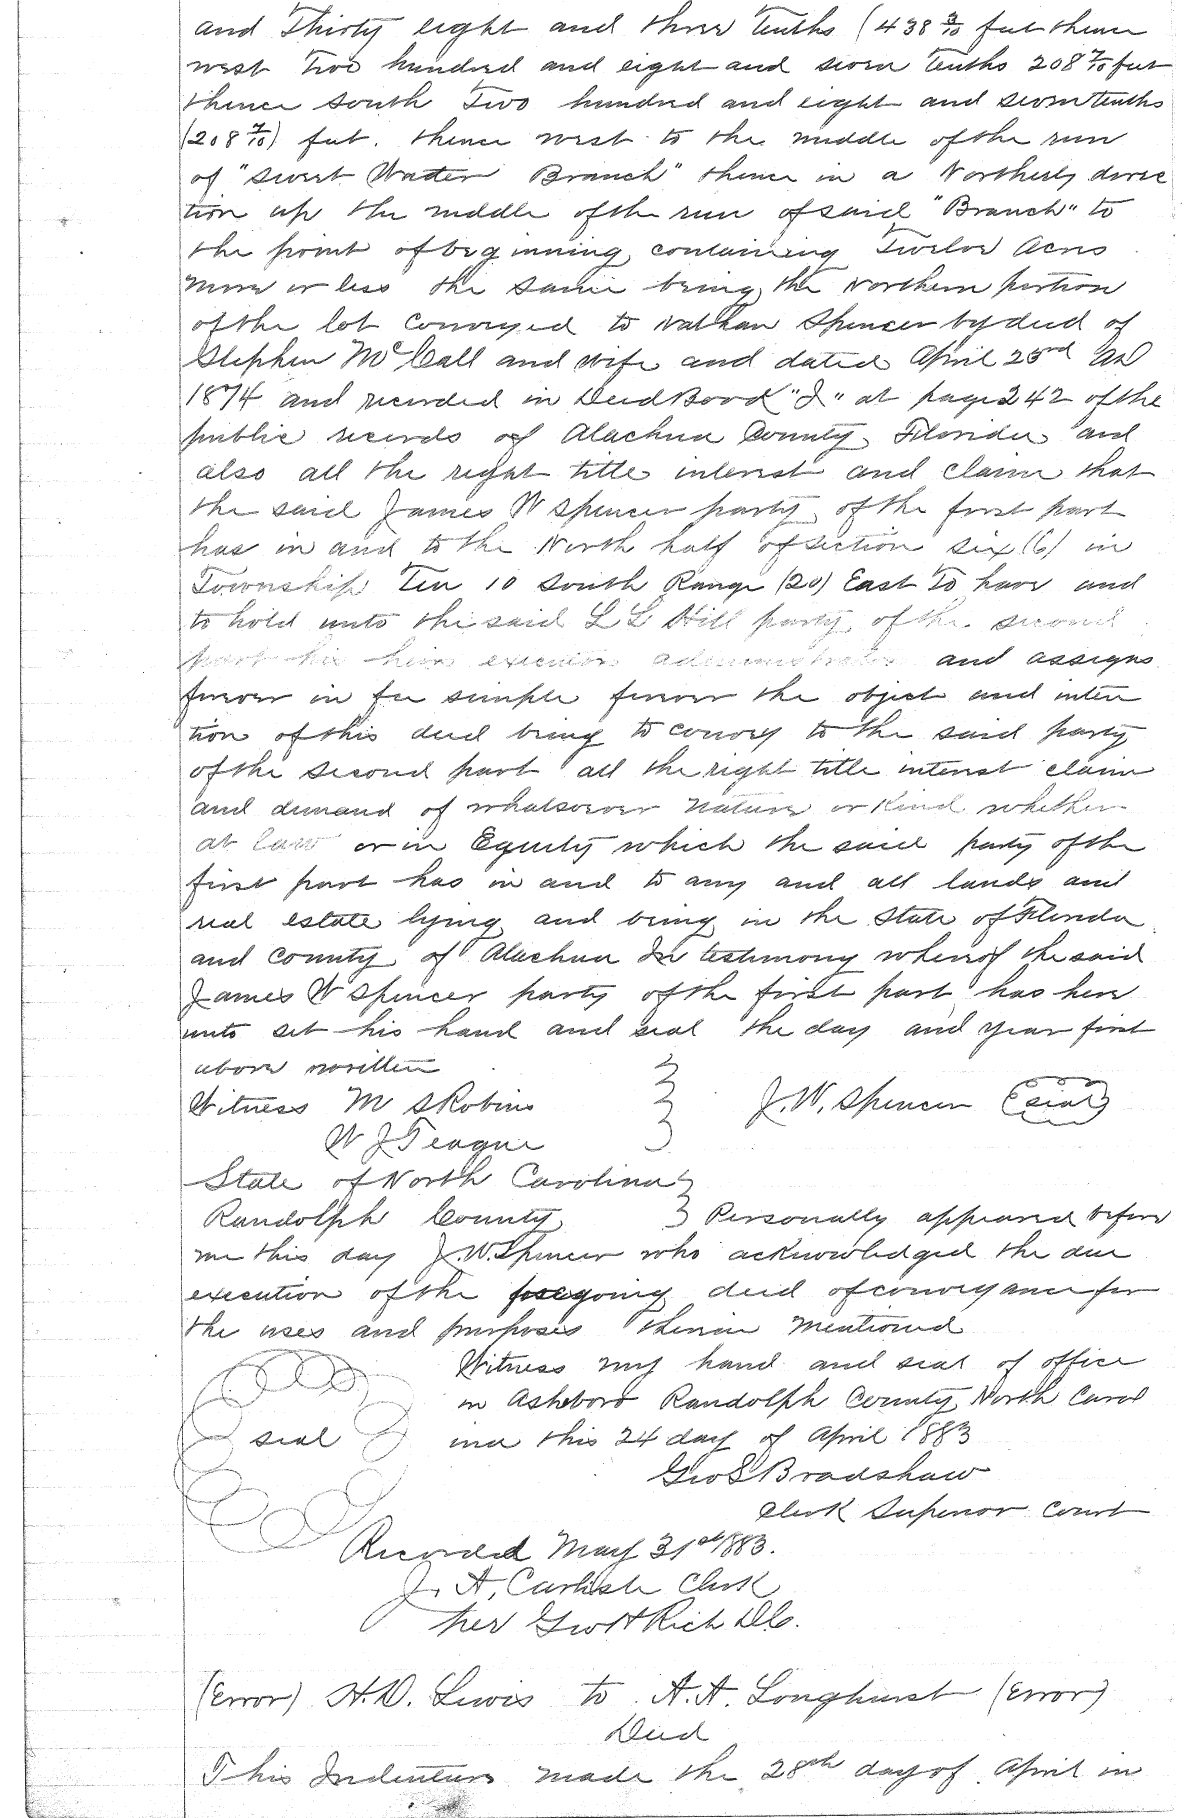 and Thirty eight and three Tenths (438 3/10 feet thence
west Two hundred and eight and seven Tenths 208 7/10 feet
thence South Two hundred and eight and seven tenths
(208 7/10) feet. thence west to the middle of the run
of "Sweet Watter Branch" thence in a Northerly direc
tion up the middle of the run of said "Branch" to
the point of beginning, containing Twelve Acres
more or less the same being the Northern portion
of the lot Conveyed to Nathan Spencer by deed of
Stephen McCall and wife and dated April 23rd AD
1874 and recorded in Deed Book "J" at page 242 of the
public records of Alachua County, Florida and
also all the right title interest and claim that
the said James W Spencer party of the first part
has in and to the North half of section six (6) in
Township Ten 10 South Range (20) East To have and
to hold unto the said L L Hill party of the second
part his heirs executors administrators and assigns
forever in fee simple forever the object and inten
tion of this deed being to convey to the said party
of the second part all the right title interest claim
and demand of whatsoever nature or Kind whether
at law or in Equity which the said party of the
first part has in and to any and all lands and
real estate lying and being in the State of Florida
and County of Alachua In testimony whereof the said
James W Spencer party of the first part has here
unto set his hand and seal the day and year first
above written
Witness M S Robins J. W. Spencer (seal)
W J Teague
State of North Carolina
Randolph County Personally appeared before
me this day J. W. Spencer who acknowledged the due
execution of the foregoing deed of conveyance for
the uses and purposes therein mentioned
Witness my hand and seal of office
in Asheboro Randolph County North Carol
seal ina this 24 day of April 1883
Geo S Bradshaw
Clerk Superior Court
Recorded May 31st 1883.
J. A. Carlisle Clerk
per Geo H Rich D.C.
(Error) H. D. Lewis to A. A. Longhurst (Error)
Deed
This Indenture made the 28th day of April in